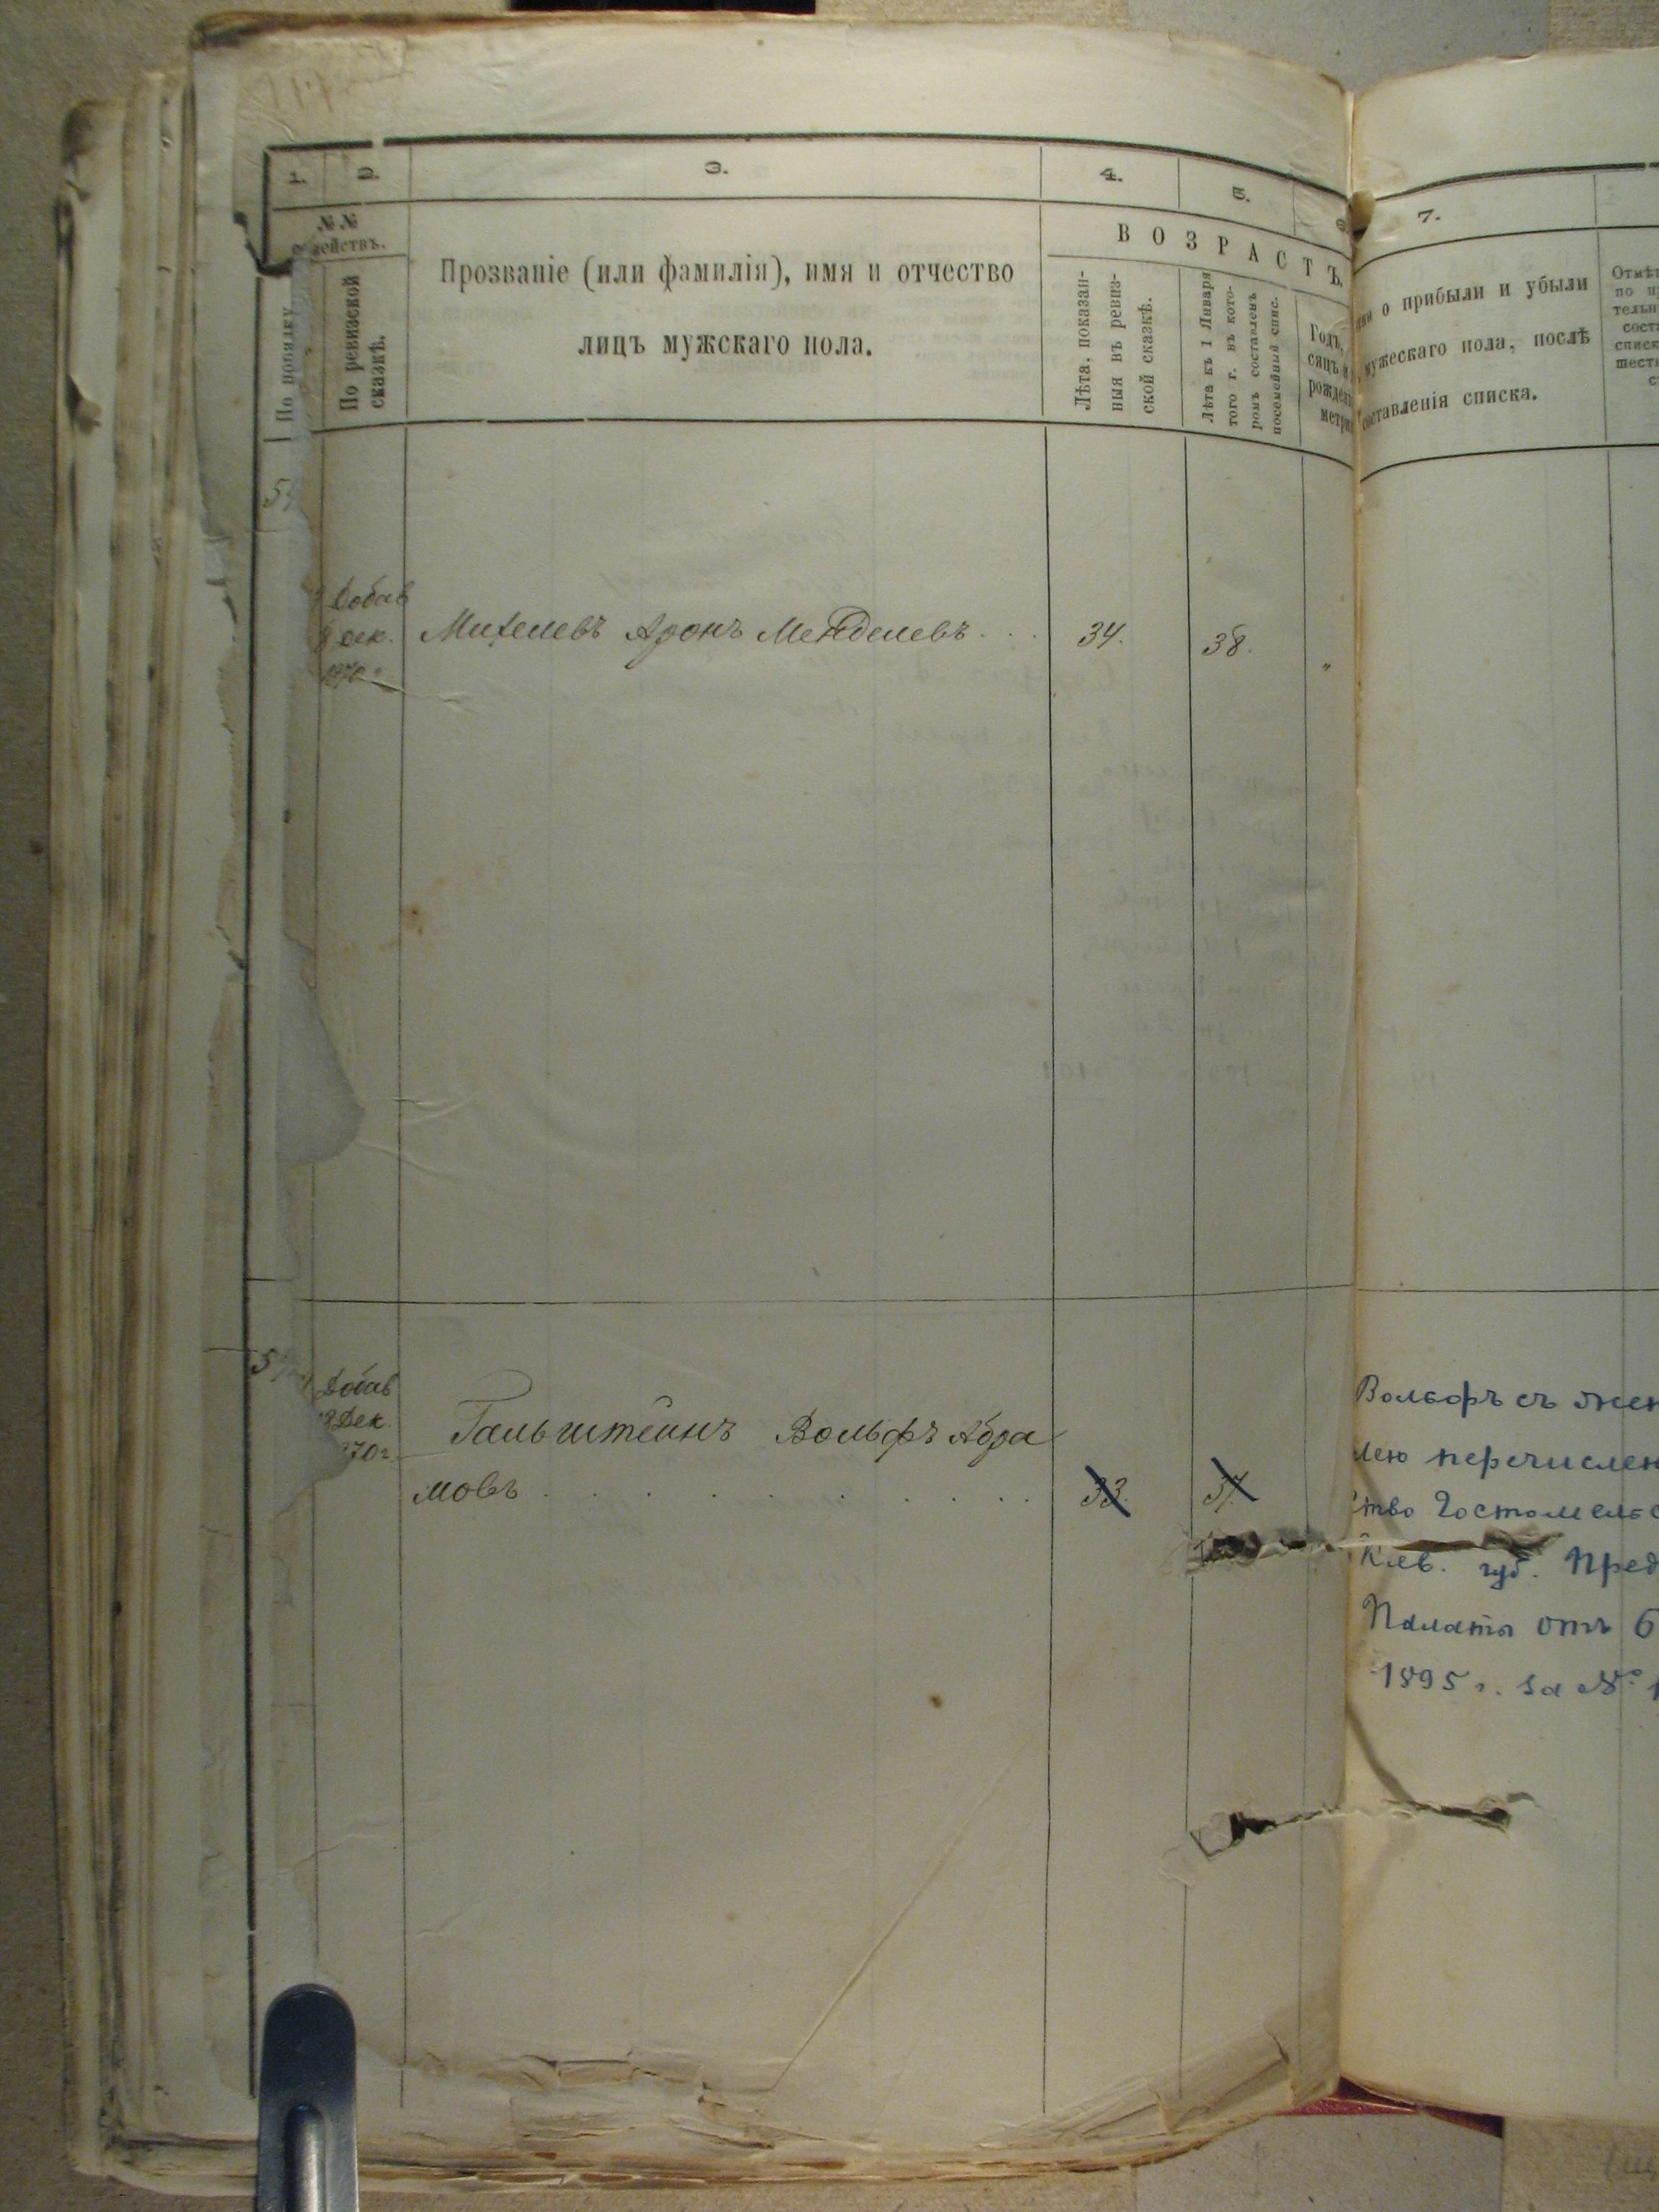 1. 2. 3. 4. 5. 6.
№ №
действъ.
По порядку
По ревизской
сказкѣ.
Прозваніе (или фамилія), имя и отчество
лицъ мужскаго пола.
ВОЗРАСТЪ.
Лѣта, показан-
ныя въ ревиз-
ской сказкѣ.
Лѣта къ 1 Января
того г. въ кото-
ромъ составленъ
посемейный спис.
Годъ,
сяцъ и
рожден
метри
Добав
Дек.
1870 г.
Михелевъ Аронъ Менделевъ . . . 34. 38. "
Добав
Дек.
870 г.
Гальштейнъ Вольфъ Абра
мовъ . . . . . . . . . 33. 37.
7.
о прибыли и убыли
мужескаго пола, послѣ
составленія списка.
Отмѣт
по
тельн
сост
списк
шест
Вольфъ съ жен
лею перечислен
ство Гостомельс
Кіев. губ. Пред
Палаты отъ 6
1895 г. за №